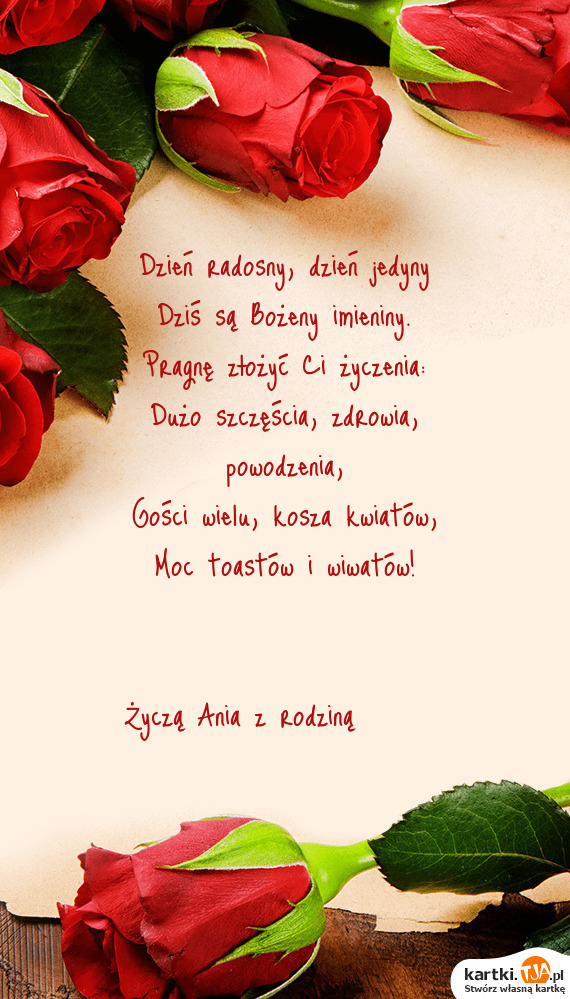 Dzień radosny, dzień jedyny
Dziś są Bożeny imieniny.
Pragnę złożyć Ci życzenia:
Dużo szczęścia, zdrowia,
powodzenia,
Gości wielu, kosza kwiatów,
Moc toastów i wiwatów!
Życzą Ania z rodziną
kartki.TJA.pl
Stwórz własną kartkę